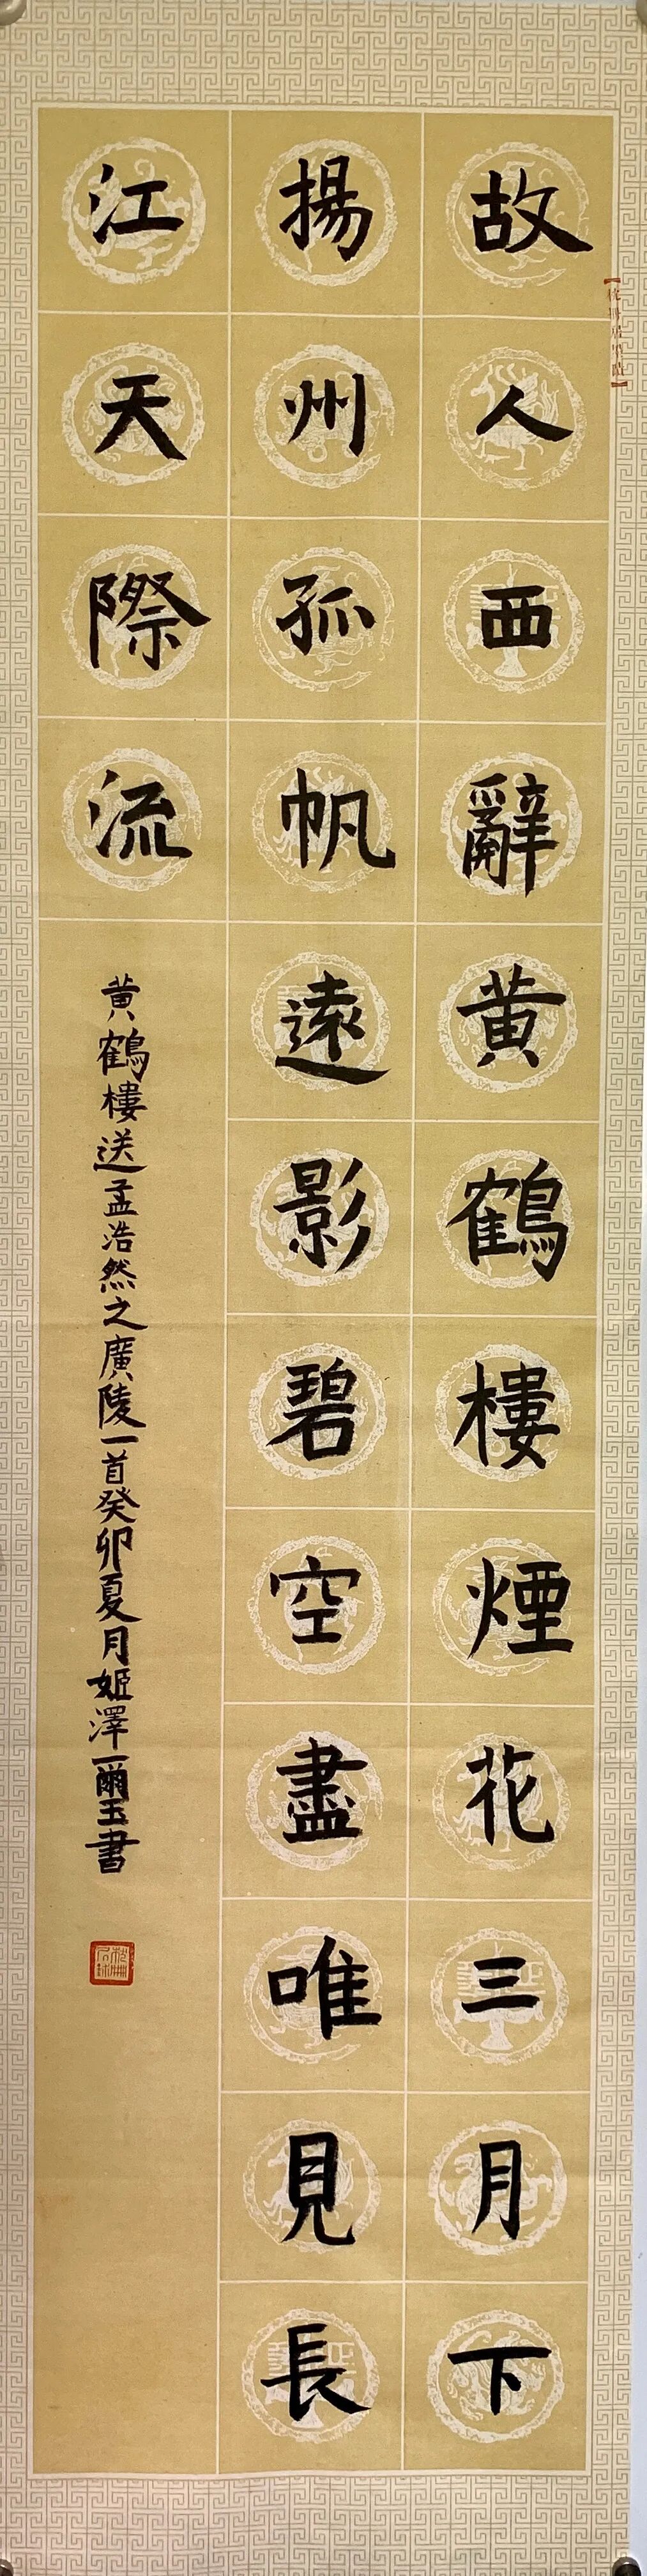 故人西辭黄鶴樓煙花三月下
揚州孤帆遠影碧空盡唯見長
江天際流
黄鶴樓送孟浩然之廣陵一首癸卯夏月姬澤爾玉書